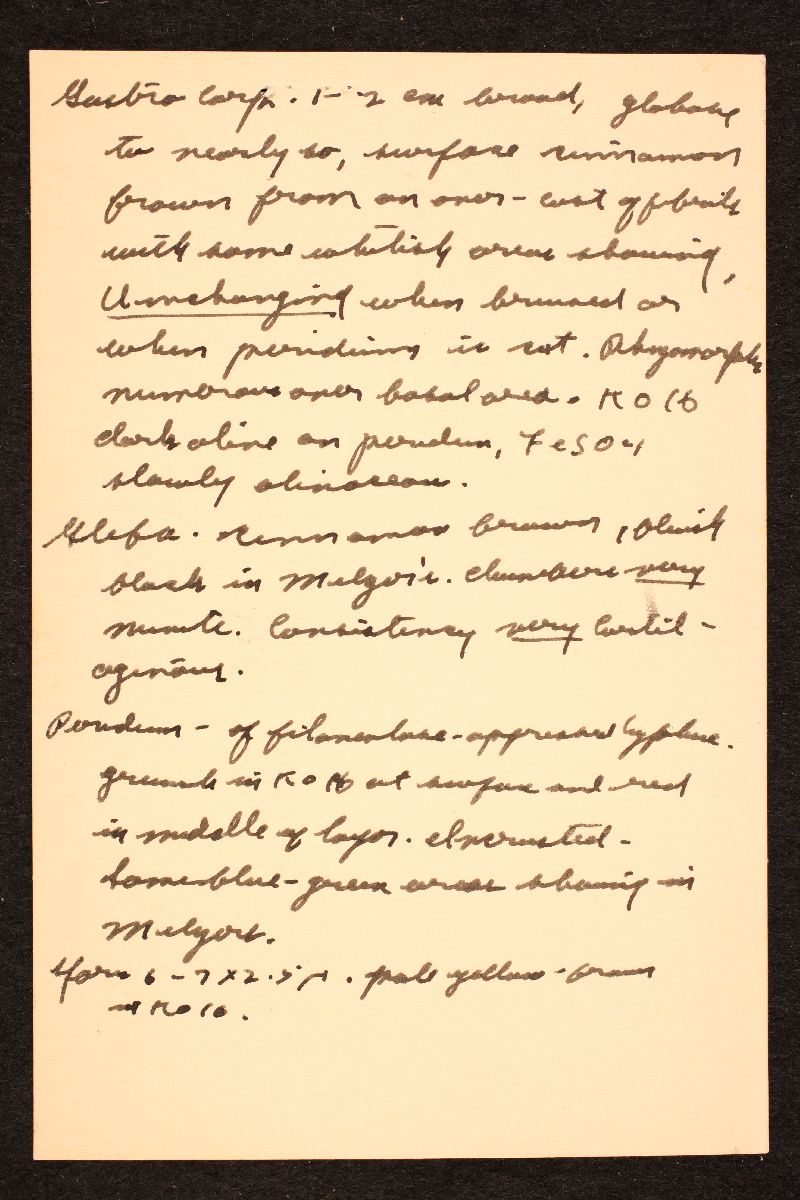 Gastro carp. 1-2 cm broad, globose
to nearly so, surface cinnamon
brown from an over-coat of fibrils
with some whitish areas showing,
Unchanging when bruised or
when peridium is cut. Rhizomorphs
numerous over basal area. KOH
dark olive on peridium, FeSO4
slowly olivaceous.
Gleba. cinnamon brown, bluish
black in Melzer's. Chambers very
minute. Consistency very cartil-
aginous.
Peridium - of filamentose-appressed hyphae.
greenish in KOH at surface and red
in middle of layer. Incrusted-
Some blue-green areas showing in
Melzers.
Spores 6-7 X 2.5 µ. pale yellow-brown
in KOH.